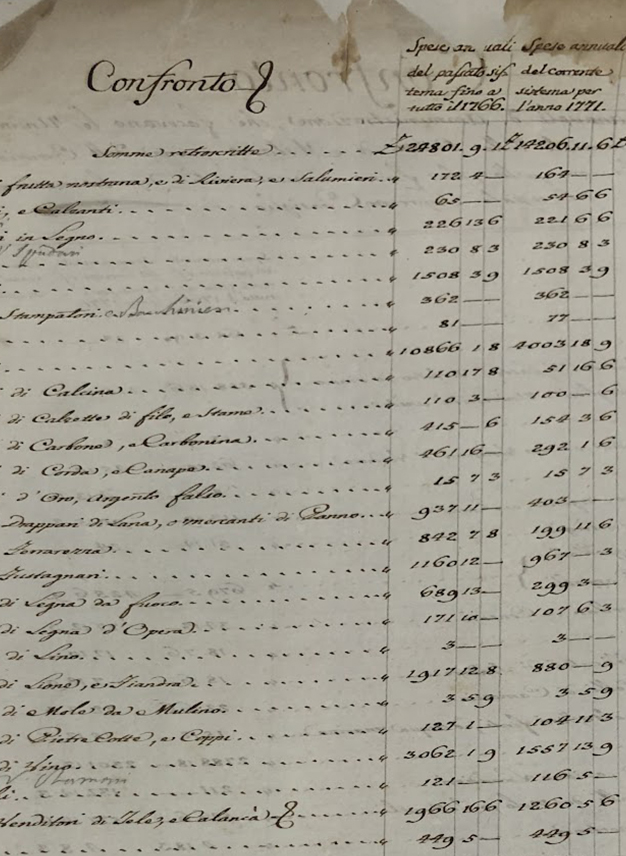 Confronto
Spese annuali del passato sistema fino a tutto il 1766.
Spese annuali del corrente sistema per l'anno 1771.
Somme retroscritte £ 24801. 9. 1 £ 14206. 11. 6 £
frutta nostrana, e di Riviera, e Salumieri " 172 4 — 164 — —
, e Calcanti " 65 — — 54 6 6
in Legno " 226 13 6 221 6 6
" 230 8 3 230 8 3
" 1508 3 9 1508 3 9
Stampatori " 362 — — 362 — —
" 81 — — 77 — —
" 10866 1 8 4003 18 9
di Calcina " 110 17 8 51 16 6
di Calzette di filo, e Stame " 110 3 — 100 — 6
di Carbone, e Carbonina " 415 — 6 154 3 6
di Corda, e Canape " 461 16 — 292 1 6
d'Oro, Argento falso " 15 7 3 15 7 3
Drappari di Lana, o mercanti di Panno " 937 11 — 403 — —
Ferrarezza " 842 7 8 199 11 6
Fustagnari " 1160 12 — 967 — 3
di Legna da fuoco " 689 13 — 299 3 —
di Legna d'Opera " 171 10 — 107 6 3
di Lino " 3 — — 3 — —
di Lione, e Fiandra " 1917 12 8 880 — 9
di Mole da Mulino " 3 5 9 3 5 9
di Pietre Cotte, e Coppi " 127 1 — 104 11 3
di Vino " 3062 1 9 1557 13 9
" 121 — — 116 5 —
Venditori di Tele, e Calancà " 1966 16 6 1260 5 6
" 449 5 — 449 5 —